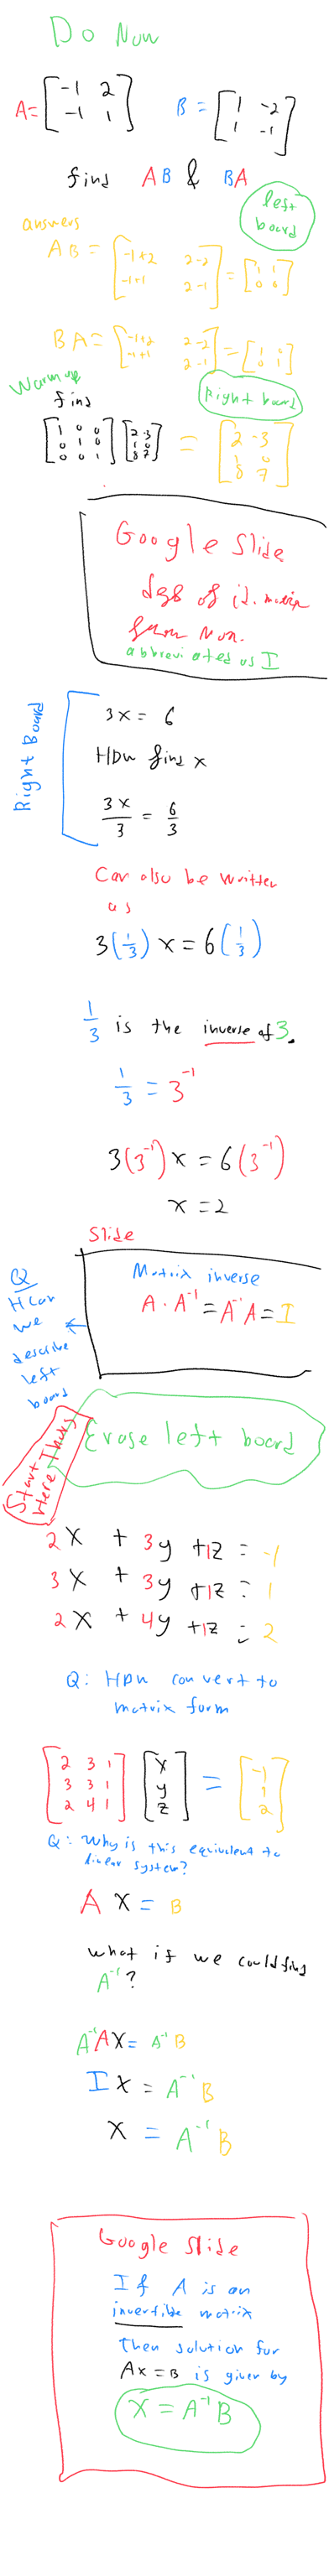 Do Now
A= [-1 2
-1 1]
B = [1 -2
1 -1]
find AB & BA
left
board
answers
AB = [-1+2 2-2
-1+1 2-1] = [1 1
0 0]
BA = [-1+2 2-2
-1+1 2-1] = [1 0
0 1]
Warm up
find
Right board
[1 0 0
0 1 0
0 0 1] [2 -3
1 0
8 7] = [2 -3
1 0
8 7]
Google Slide
of id. matrix
from
abbreviated as I
Right Board
3x = 6
HDW find x
3x/3 = 6/3
Can also be written
as
3(1/3) x = 6(1/3)
1/3 is the inverse of 3.
1/3 = 3⁻¹
3(3⁻¹) x = 6(3⁻¹)
x = 2
Slide
Matrix inverse
A · A⁻¹ = A⁻¹A = I
Q
we
describe
left
board
Erase left board
Start
Here
2x + 3y + 1z = -1
3x + 3y + 1z = 1
2x + 4y + 1z = 2
Q: HDW convert to
matrix form
[2 3 1
3 3 1
2 4 1] [x
y
z] = [-1
1
2]
Q: Why is this equivalent to
linear system?
A X = B
what if we could find
A⁻¹?
A⁻¹AX = A⁻¹B
IX = A⁻¹B
X = A⁻¹B
Google Slide
If A is an
invertible matrix
then solution for
AX = B is given by
X = A⁻¹B